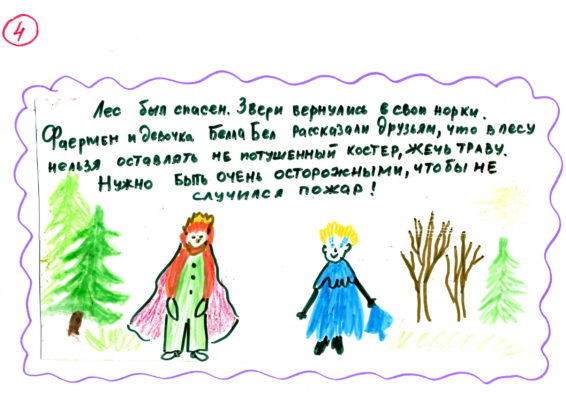 4
Лес был спасен. Звери вернулись в свои норки.
Фаермен и девочка Белла Бел рассказали друзьям, что в лесу
нельзя оставлять не потушенный костер, жечь траву.
Нужно быть очень осторожными, чтобы не
случился пожар!